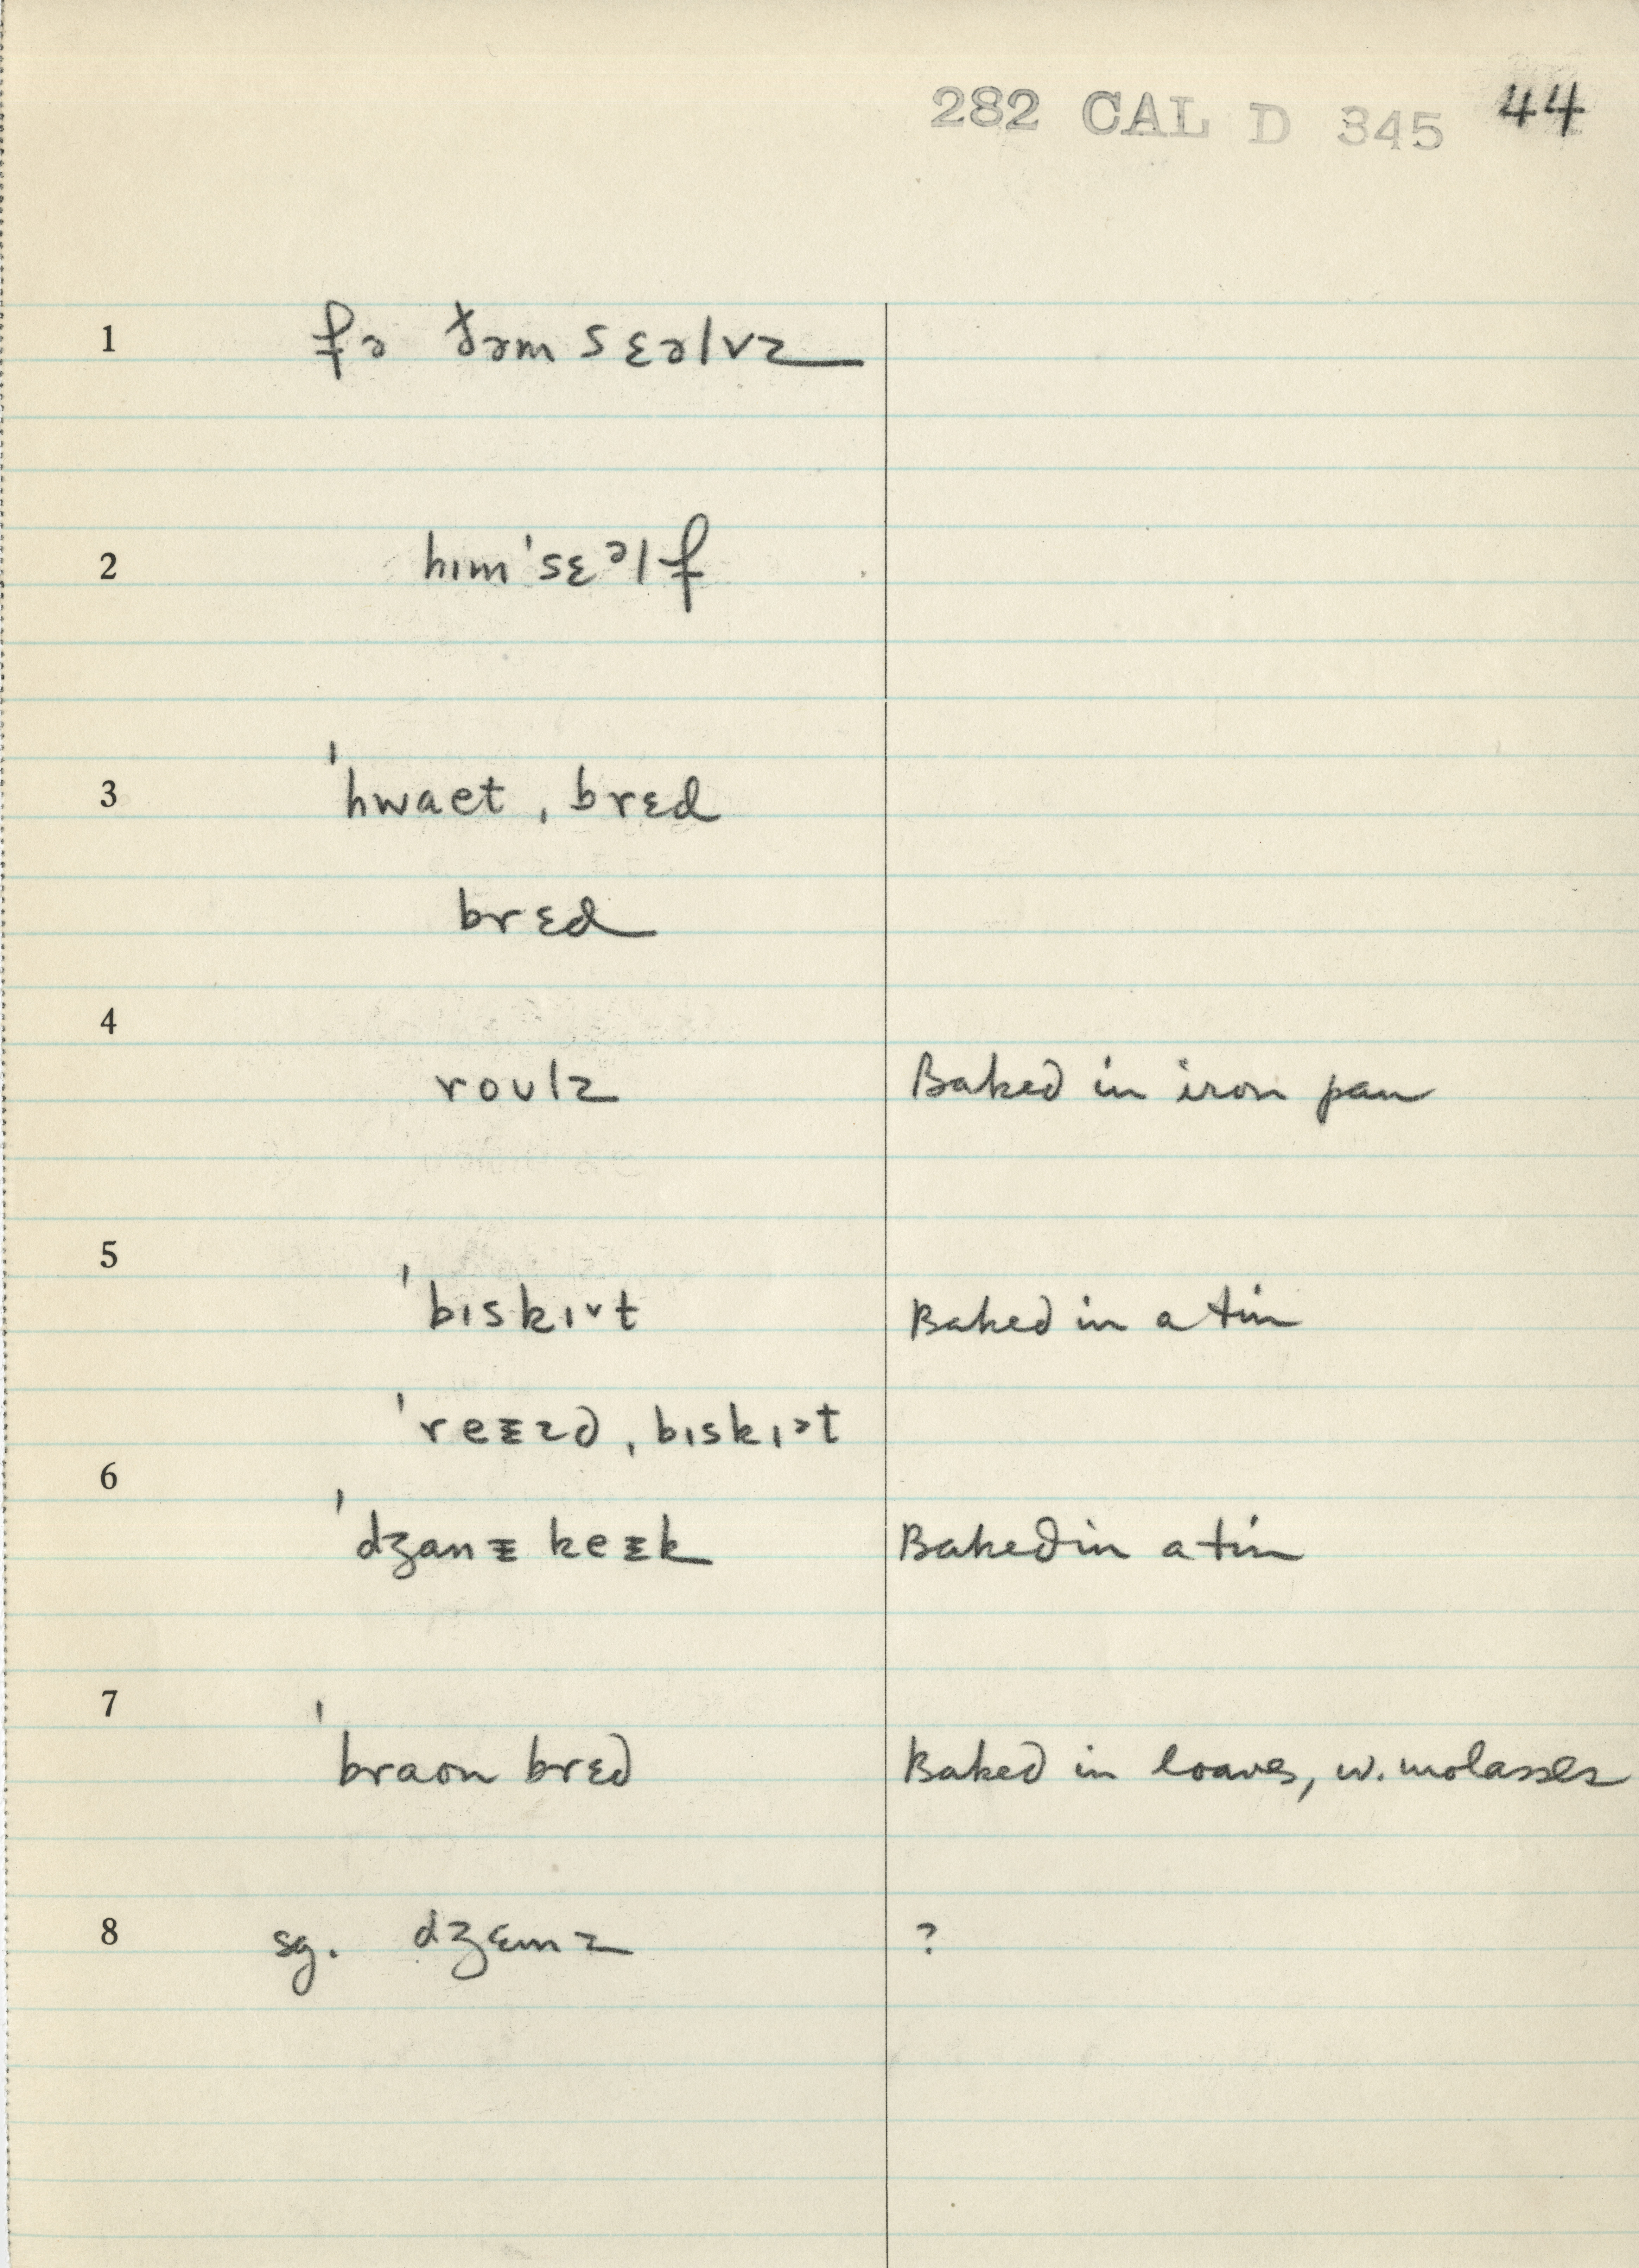 282 CAL D 345 44
1 fə ðəm sɛəlvz
2 hɪm ˈsɛᵊlf
3 ˈhwaet ˌbrɛd
brɛd
4
roʊlz Baked in iron pan
5
ˈbɪskɪ˅t Baked in a tin
ˈreᵻzd ˌbɪskɪ˃t
6
ˈdʒanᵻ keᵻk Baked in a tin
7
ˈbraon brɛd Baked in loaves, w. molasses
8 sg. dʒɛmz ?